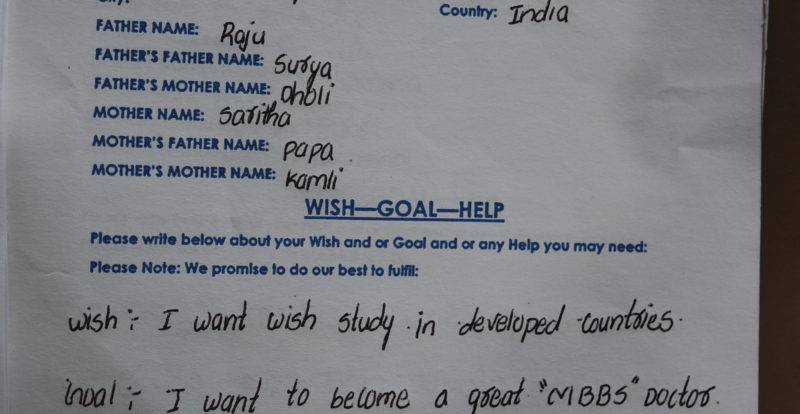 Country: India
FATHER NAME: Raju
FATHER'S FATHER NAME: Surya
FATHER'S MOTHER NAME: Dholi
MOTHER NAME: Saritha
MOTHER'S FATHER NAME: Papa
MOTHER'S MOTHER NAME: Kamli
WISH—GOAL—HELP
Please write below about your Wish and or Goal and or any Help you may need:
Please Note: We promise to do our best to fulfil:
wish :- I want wish study in developed countries.
:- I want to become a great "MBBS" Doctor.